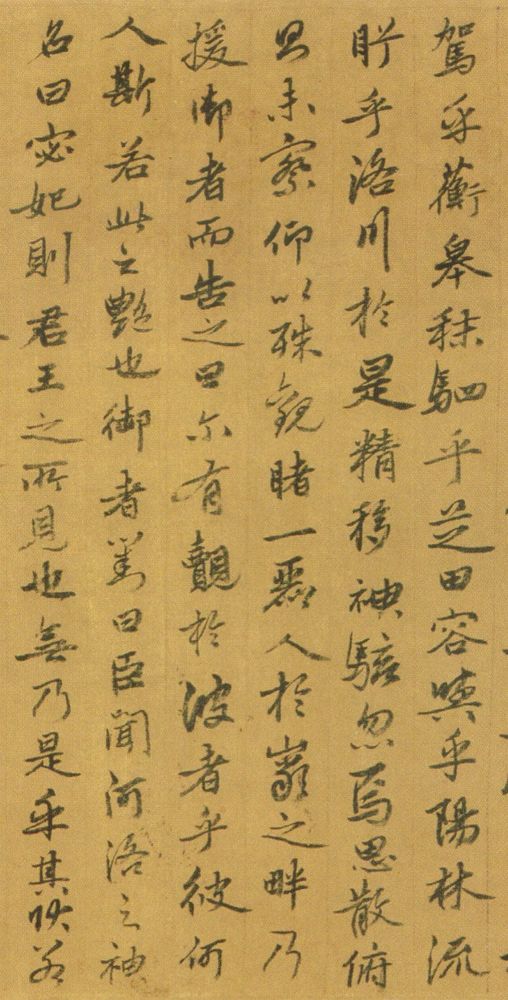 駕乎蘅皋秣駟乎芝田容與乎陽林流
眄乎洛川於是精移神駭忽焉思散俯
則未察仰以殊觀睹一麗人於巖之畔乃
援御者而告之曰尓有覿於彼者乎彼何
人斯若此之艷也御者對曰臣聞河洛之神
名曰宓妃則君王之所見也無乃是乎其狀若